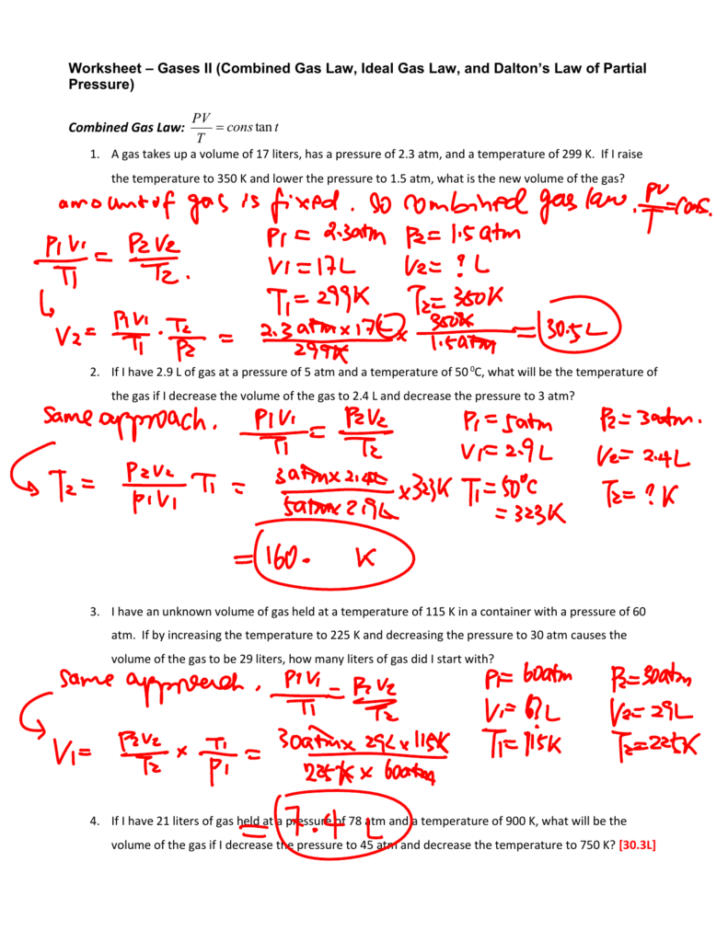 Worksheet – Gases II (Combined Gas Law, Ideal Gas Law, and Dalton's Law of Partial
Pressure)
Combined Gas Law: PV/T = constant
1. A gas takes up a volume of 17 liters, has a pressure of 2.3 atm, and a temperature of 299 K. If I raise
the temperature to 350 K and lower the pressure to 1.5 atm, what is the new volume of the gas?
amount of gas is fixed. So combined gas law. PV/T = cons.
P1V1/T1 = P2V2/T2. P1 = 2.3atm P2 = 1.5 atm
V1 = 17L V2 = ? L
T1 = 299K T2 = 350K
V2 = P1V1/T1 · T2/P2 = 2.3 atm x 17L/299K x 350K/1.5atm = 30.5L
2. If I have 2.9 L of gas at a pressure of 5 atm and a temperature of 50 ⁰C, what will be the temperature of
the gas if I decrease the volume of the gas to 2.4 L and decrease the pressure to 3 atm?
Same approach. P1V1/T1 = P2V2/T2 P1 = 5atm P2 = 3atm.
V1 = 2.9L V2 = 2.4L
T2 = P2V2/P1V1 T1 = 3atm x 2.4L/5atm x 2.9L x 323K T1 = 50°C T2 = ? K
= 323K
= 160. K
3. I have an unknown volume of gas held at a temperature of 115 K in a container with a pressure of 60
atm. If by increasing the temperature to 225 K and decreasing the pressure to 30 atm causes the
volume of the gas to be 29 liters, how many liters of gas did I start with?
Same approach. P1V1/T1 = P2V2/T2 P1 = 60atm P2 = 30atm
V1 = ? L V2 = 29L
V1 = P2V2/T2 x T1/P1 = 30atm x 29L x 115K/225K x 60atm T1 = 115K T2 = 225K
= 7.4 L
4. If I have 21 liters of gas held at a pressure of 78 atm and a temperature of 900 K, what will be the
volume of the gas if I decrease the pressure to 45 atm and decrease the temperature to 750 K? [30.3L]